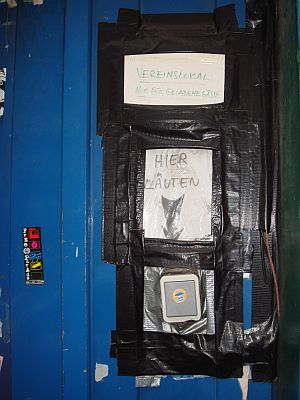 VEREINSLOKAL
NUR FÜR GELADENE GÄSTE
HIER
LÄUTEN